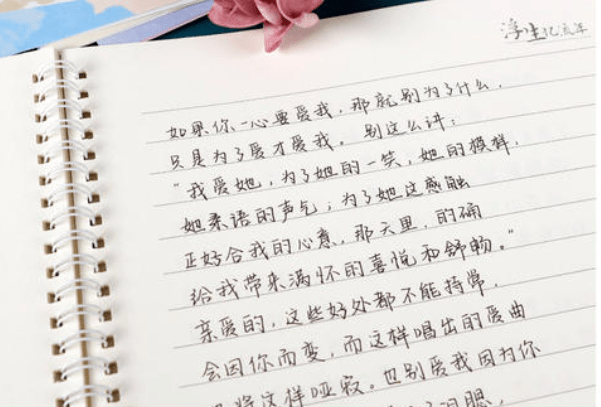 浮生忆流年
如果你一心要爱我,那就别为了什么,
只是为了爱才爱我。别这么讲:
“我爱她,为了她的一笑,她的模样,
她柔语的声气;为了她这感触
正好合我的心意,那天里,的确
给我带来满怀的喜悦和舒畅。”
亲爱的,这些好外都不能持常,
会因你而变,而这样唱出的爱曲
将这样哑寂。也别爱我因为你